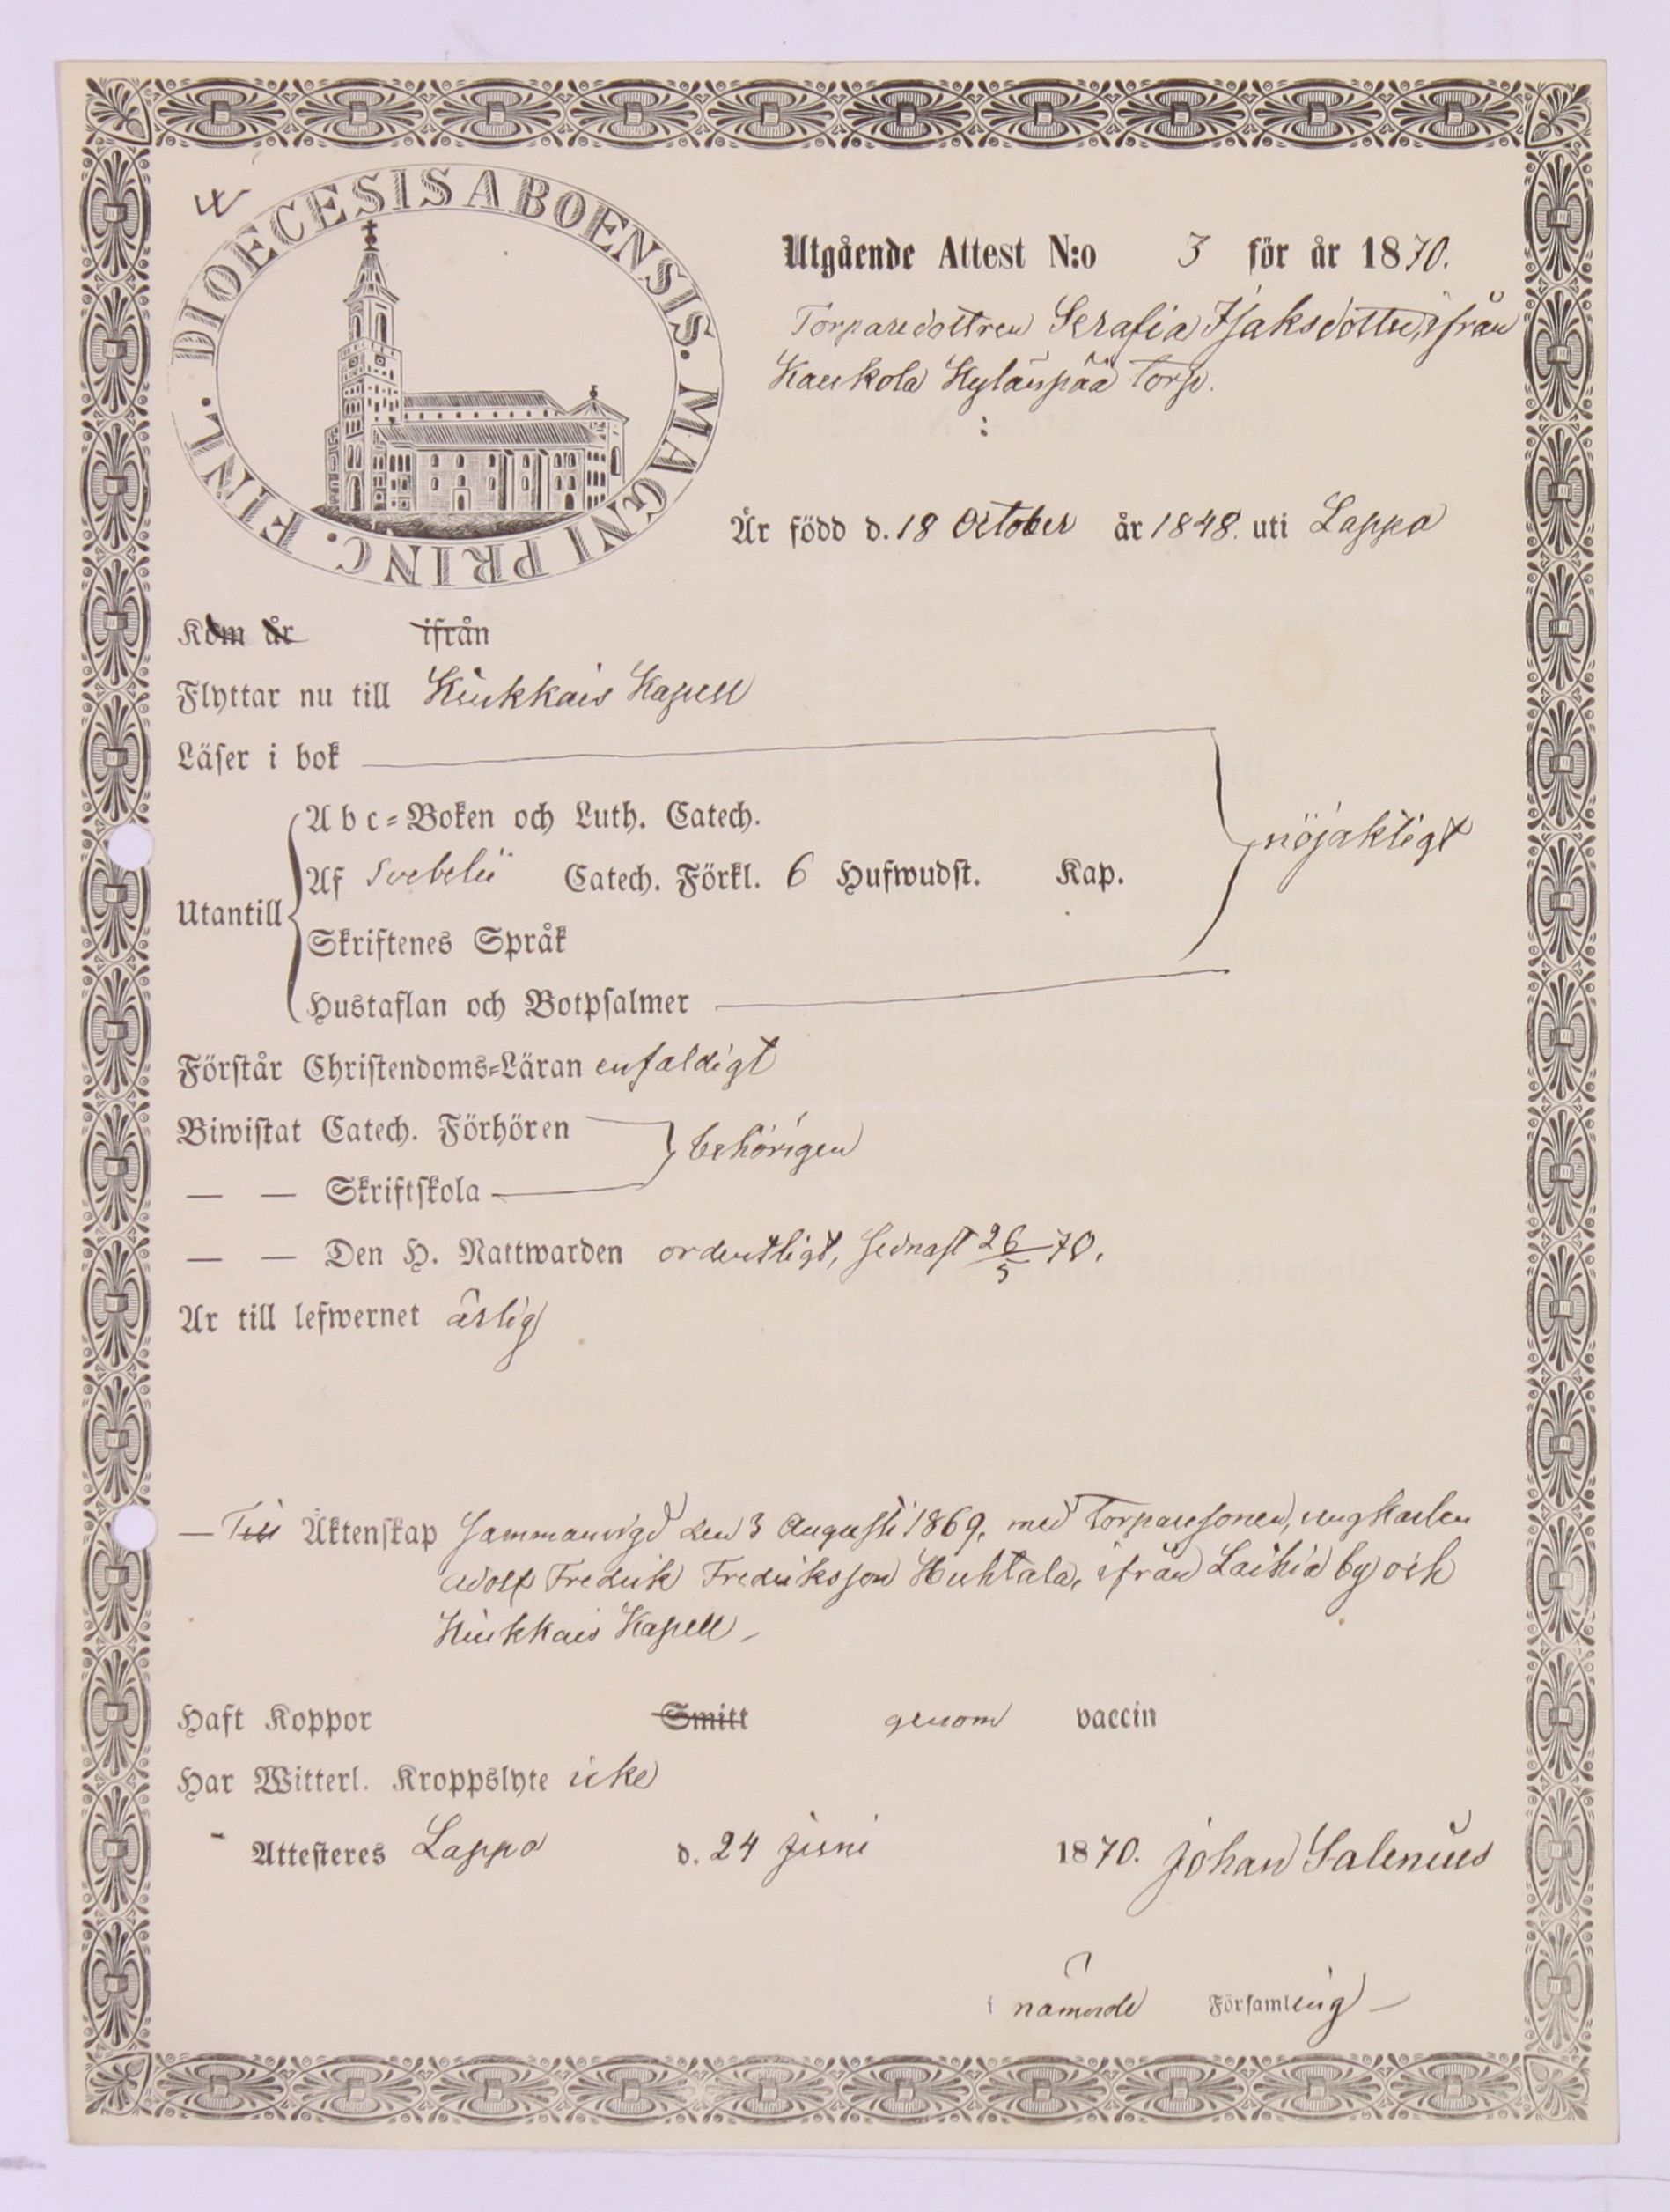 4
DIOECESIS ABOENSIS. MAGNI PRINC. FINL.
Utgående Attest N:o 3 för år 1870.
Torparedottren Serafia Isaksdotter, ifrån
Kaukola Kylänpää torp.
Är född d. 18 October år 1848. uti Lappo
Kom år ifrån
Flyttar nu till Kiukkais Kapell
Läser i bok
Abc-Boken och Luth. Catech.
nöjaktigt
Af Svebelii Catech. Förkl. 6 Hufwudst. Kap.
Utantill
Skriftenes Språk
Hustaflan och Botpsalmer
Förstår Christendoms-Läran enfaldigt
Biwistat Catech. Förhören
behörigen
— — Skriftskola
— — Den H. Nattwarden ordentligt, sednast 26/5 70.
Är till lefwernet ärlig
— Till Äktenskap sammanvigd den 3 Augusti 1869, med torparesonen, ungkarlen
Adolf Fredrik Fredriksson Huhtala, ifrån Laihia by och
Kiukkais Kapell
Haft Koppor Smitt genom vaccin
Har Witterl. Kroppslyte icke
Attesteres Lappo d. 24 Juni 1870. Johan Salenius
i nämnde Församling